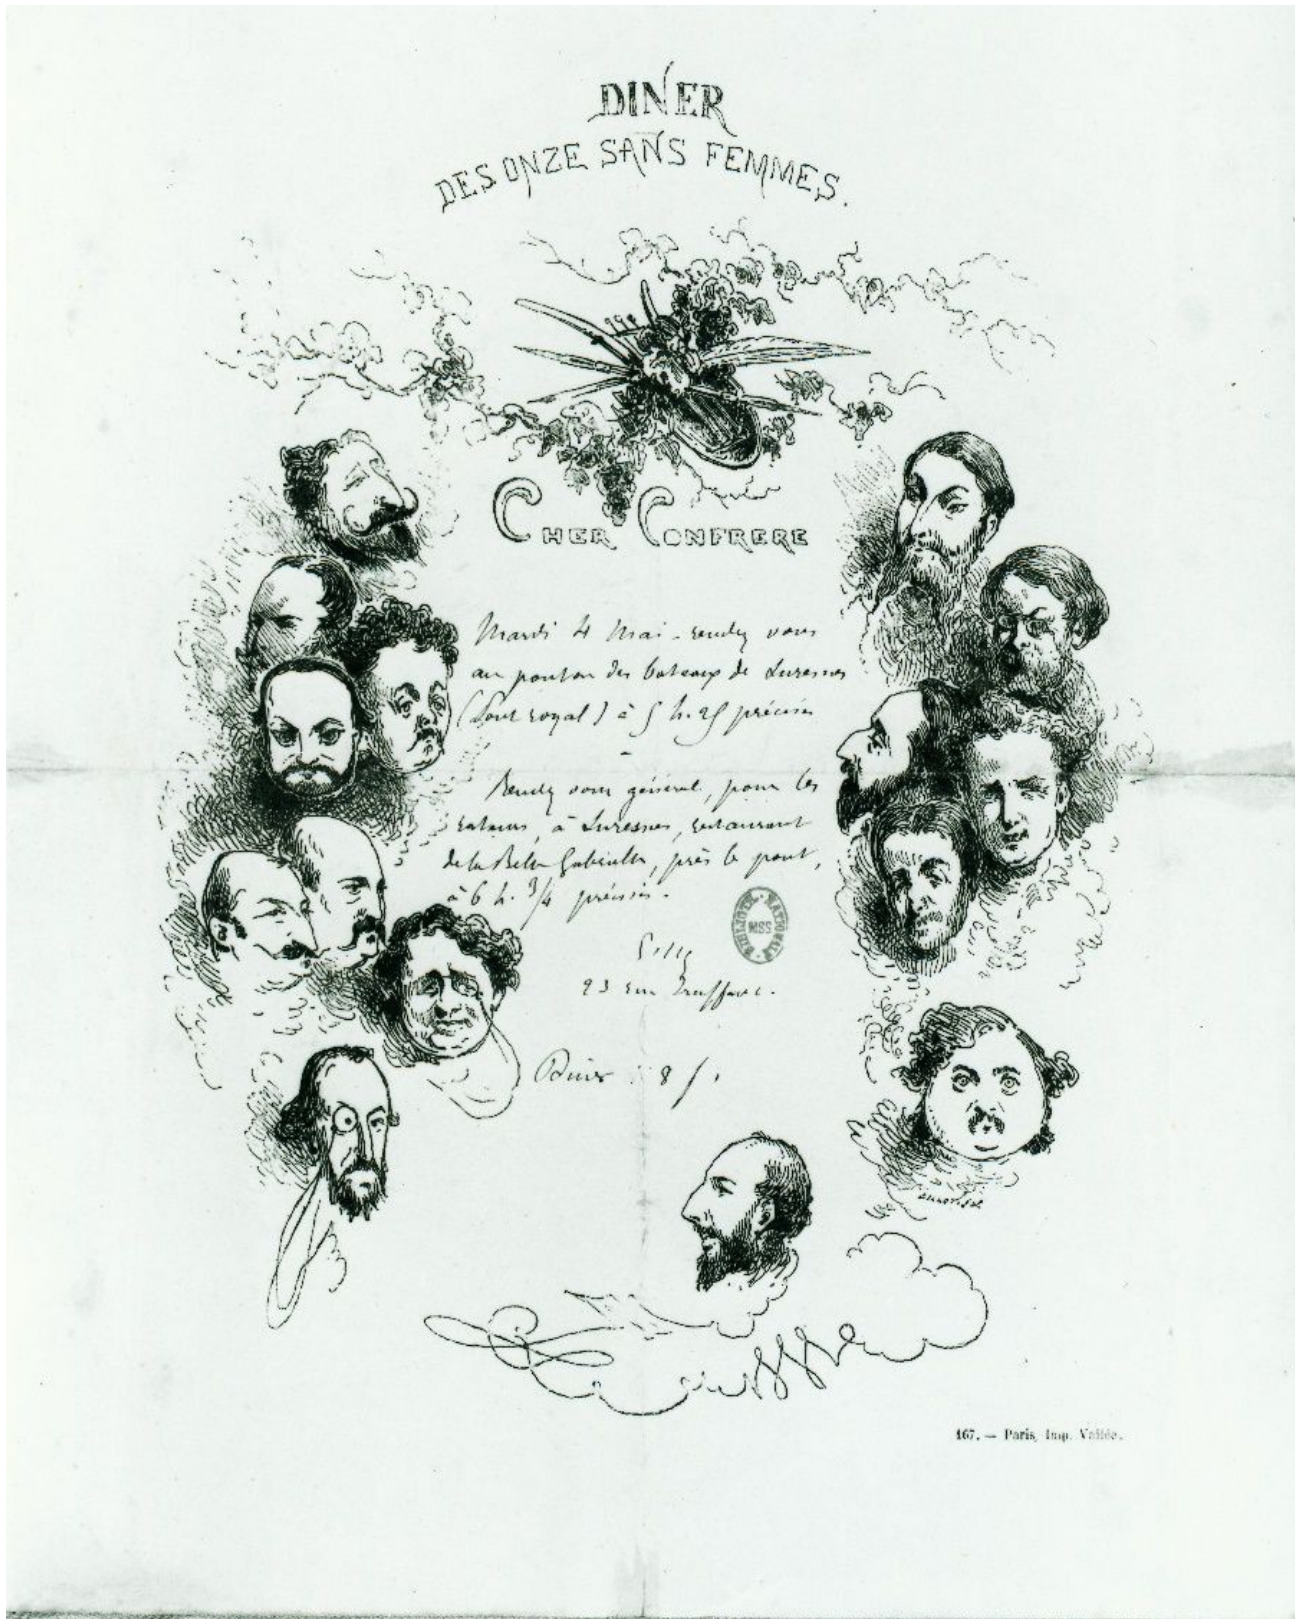 DINER
DES ONZE SANS FEMMES.
CHER CONFRERE
Mardi 4 Mai - rendez vous
au ponton des bateaux de Suresnes
(Pont royal) à 5 h. 25 précises
Rendez vous général, pour les
à Suresnes, restaurant
de la Belle Gabrielle, près le pont,
à 6 h. 3/4 précises.
BIBLIOTH. NATIONALE
MSS
23 rue Truffaut.
Diner : 8 f.
167. — Paris, Imp. Vallée.